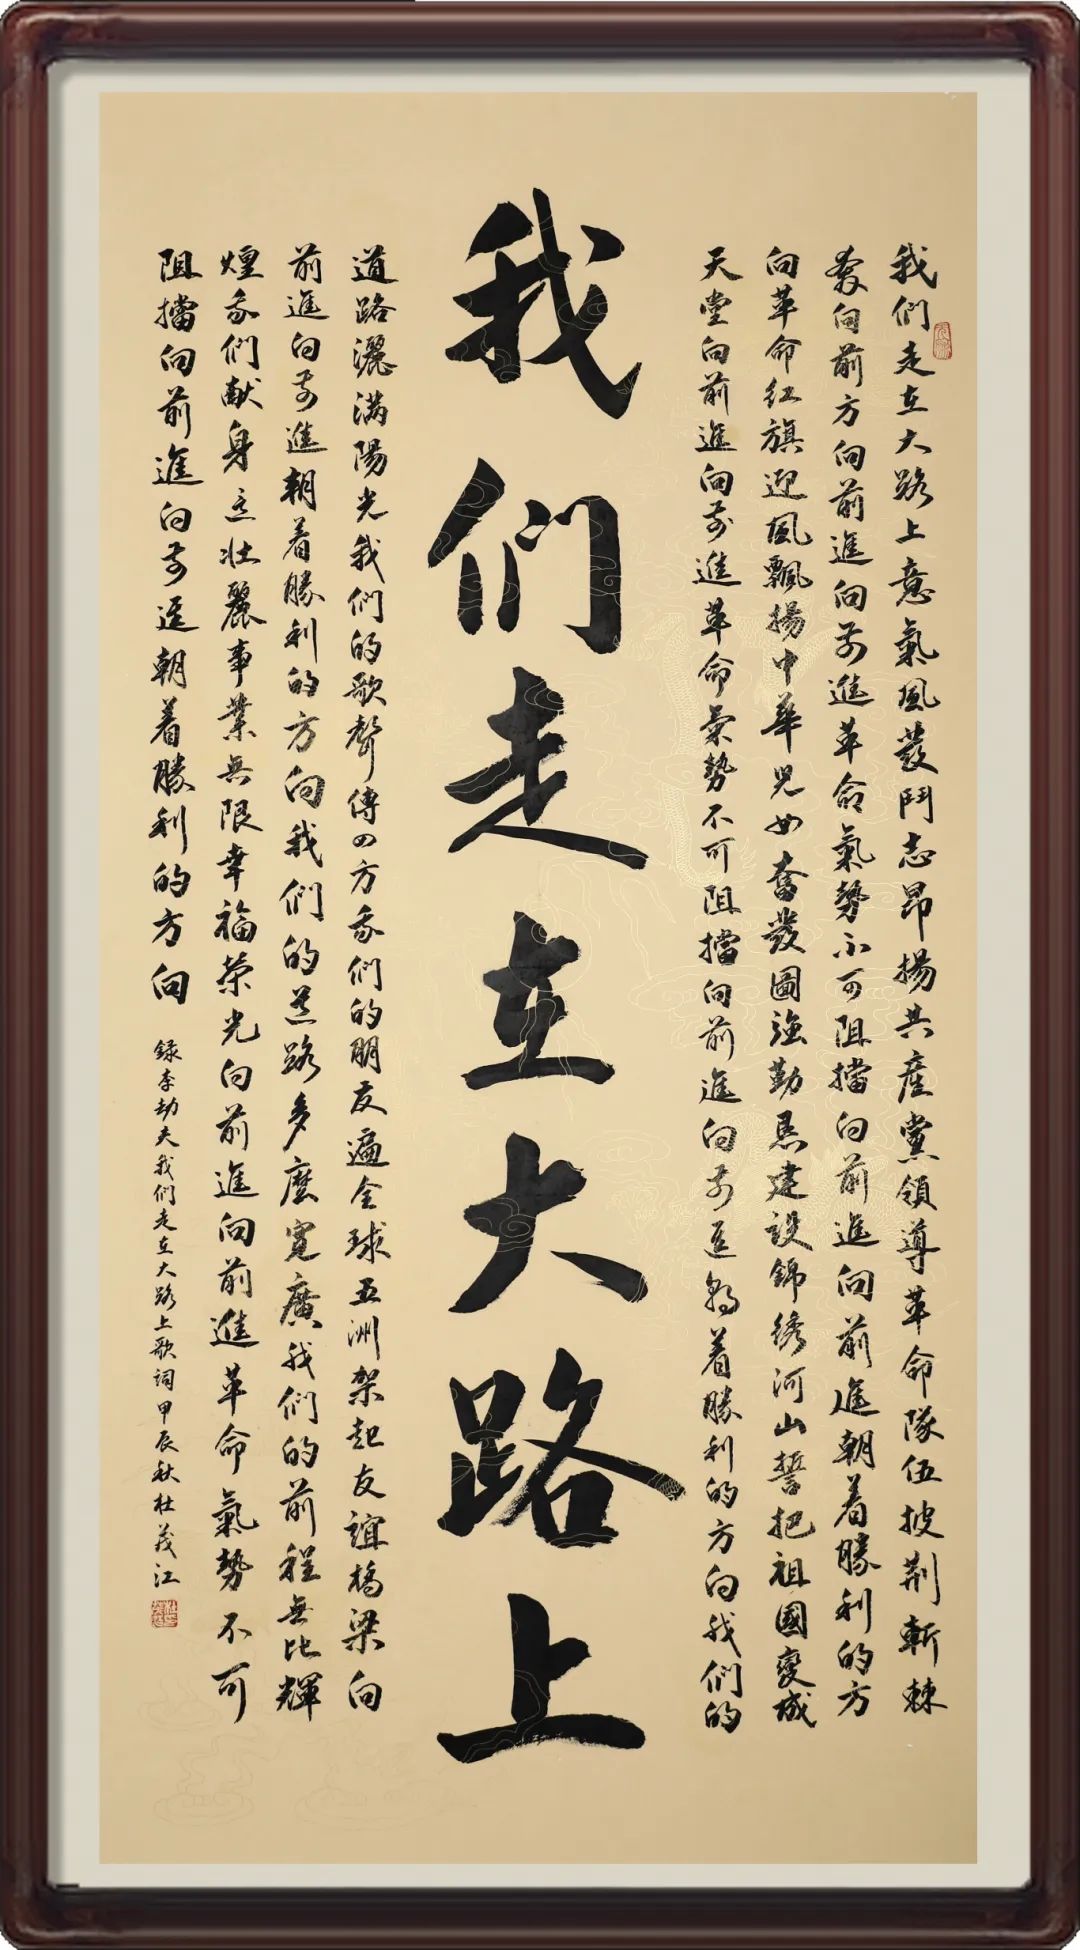 我们走在大路上意氣風發鬥志昂揚共產黨領導革命隊伍披荆斬棘
奔向前方向前進向前進革命氣勢不可阻擋向前進向前進朝着勝利的方
向革命红旗迎風飄揚中華兒女奮發圖强勤恳建設錦绣河山誓把祖國變成
天堂向前進向前進革命氣勢不可阻擋向前進向前進朝着勝利的方向我们的
我们走在大路上
道路灑满陽光我们的歌聲傳四方我們的朋友遍全球五洲架起友誼橋梁向
前進向前進朝着勝利的方向我们的道路多麽寬廣我们的前程無比輝
煌我們献身这壮麗事業無限幸福榮光向前進向前進革命氣勢不可
阻擋向前進向前進朝着勝利的方向
録李劫夫我们走在大路上歌詞甲辰秋杜茂江